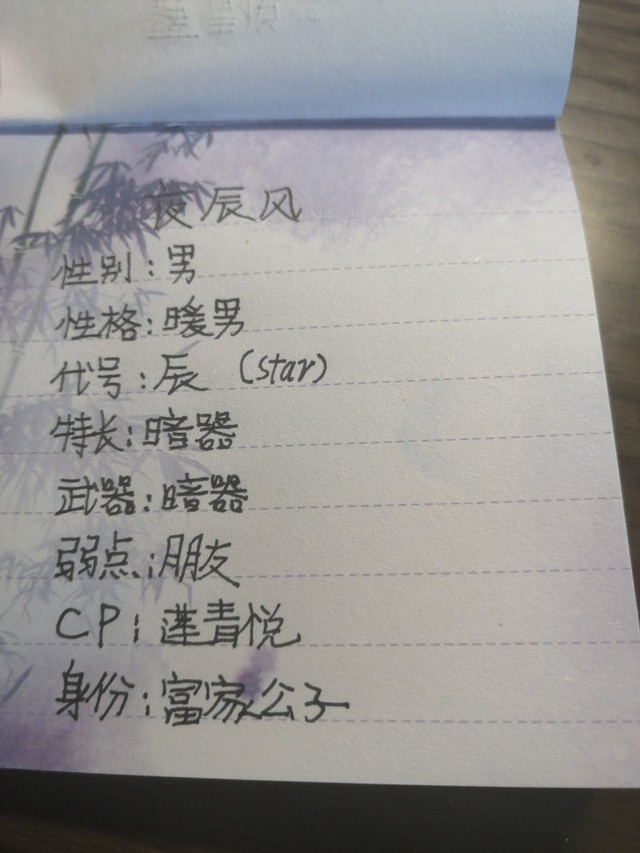 夜辰风
性别：男
性格：暖男
代号：辰（star）
特长：暗器
武器：暗器
弱点：朋友
CP：莲青悦
身份：富家公子